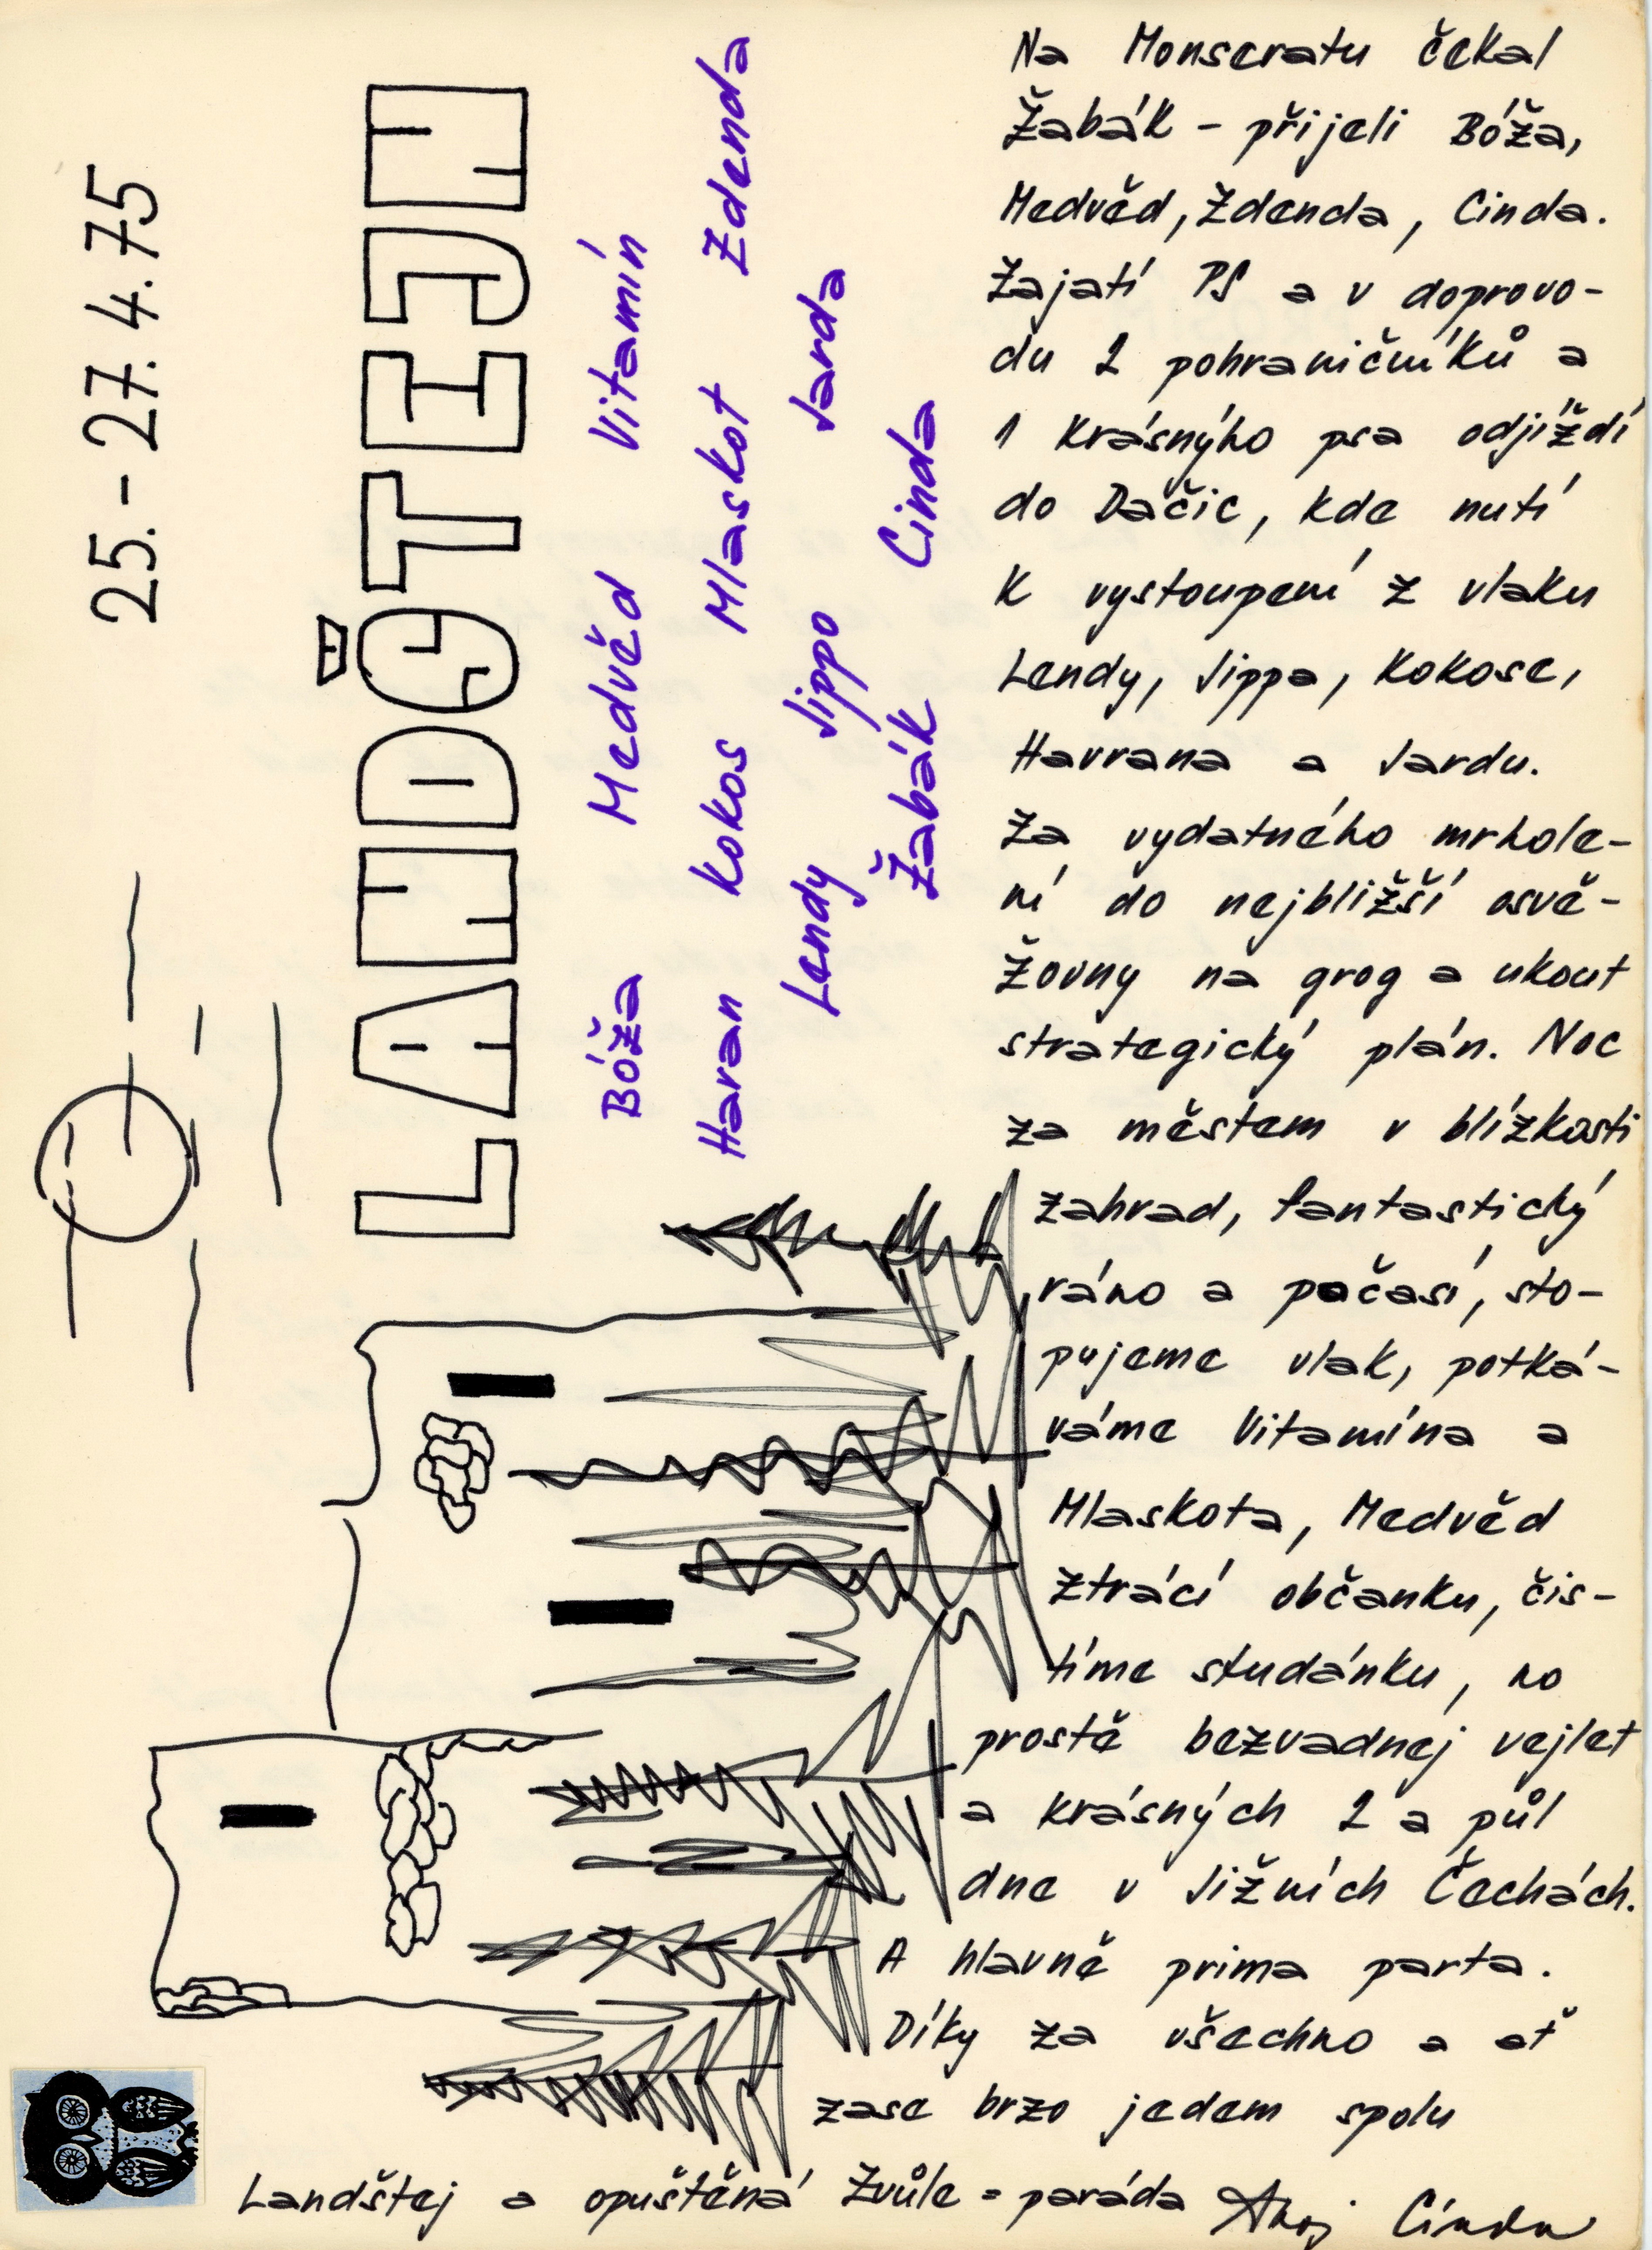 25.-27.4.75
LANDŠTEJN
Bóža Medvěd Vitamín
Havran Kokos Mlaskot Zdenda
Lendy Jippo Jarda
Žabák Cinda
Na Monseratu čekal
Žabák - přijeli Bóža,
Medvěd, Zdenda, Cinda.
Zajatí PS a v doprovo-
du 2 pohraničníků a
1 krásnýho psa odjíždí
do Dačic, kde nutí
k vystoupení z vlaku
Lendy, Jippa, Kokose,
Havrana a Jardu.
Za vydatného mrhole-
ní do nejbližší osvě-
žovny na grog a ukout
strategický plán. Noc
za městem v blízkosti
zahrad, fantastický
ráno a počasí, sto-
pujeme vlak, potká-
váme Vitamína a
Mlaskota, Medvěd
ztrácí občanku, čis-
tíme studánku, no
prostě bezvadnej vejlet
a krásných 2 a půl
dne v Jižních Čechách.
A hlavně prima parta.
Díky za všechno a ať
zase brzo jedem spolu
Landštej a opuštěná Zvůle = paráda Ahoj Cinda